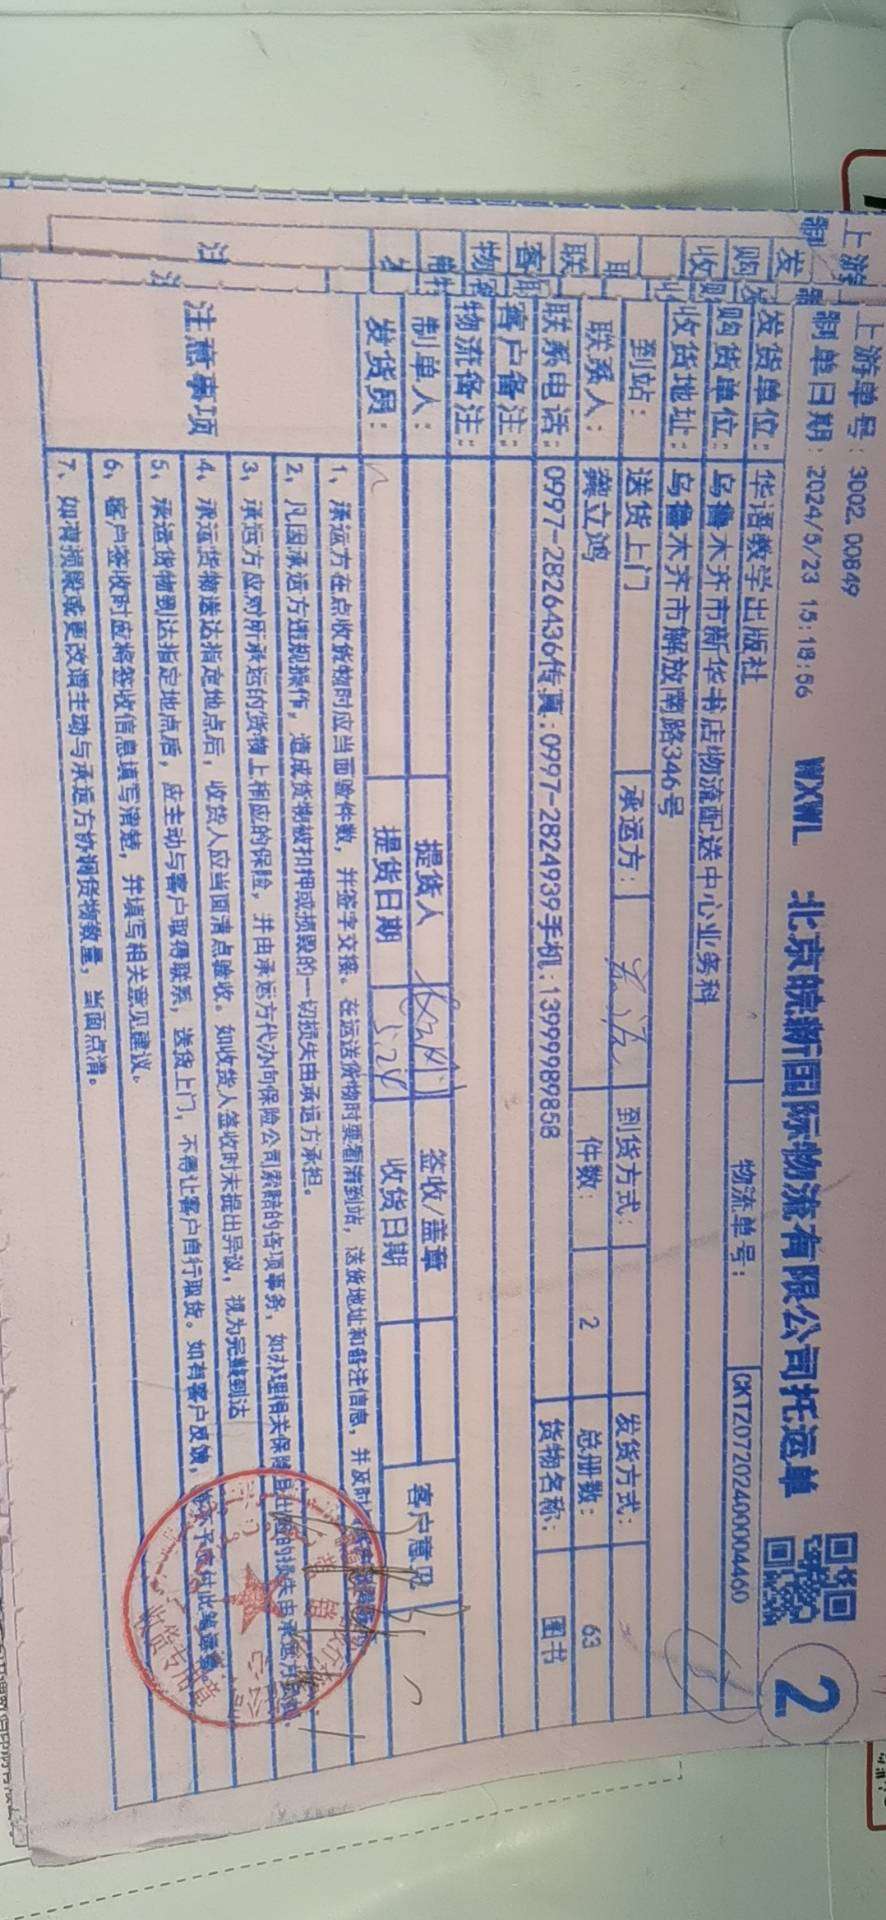 上游单号：3002.00849
制单日期：2024/5/23 15:18:56 WXWL 北京皖新国际物流有限公司托运单 2
发货单位：华语教学出版社 物流单号：CKTZ0720240004460
购货单位：乌鲁木齐市新华书店物流配送中心业务科
收货地址：乌鲁木齐市解放南路346号
到站：送货上门 承运方： 到货方式： 发货方式：
联系人：龚立鸿 件数：2 总册数：63
联系电话：0997-2826436传真：0997-2824939手机：13999989858 货物名称：图书
客户备注：
物流备注：
制单人： 提货人 签收/盖章 客户意见
发货员： 提货日期 5.24 收货日期
注意事项
1、承运方在点收货物时应当面验件数，并签字交接。在运送货物时要看清到站，送货地址和备注信息，并及时
2、凡因承运方违规操作，造成货物被扣押或损毁的一切损失由承运方承担。
3、承运方应对所承运的货物上相应的保险，并由承运方代办向保险公司索赔的各项事务，如办理相关保险且出险的损失由承运方
4、承运货物送达指定地点后，收货人应当面清点验收。如收货人签收时未提出异议，视为完整到达
5、承运货物到达指定地点后，应主动与客户取得联系，送货上门，不得让客户自行取货。如有客户反馈，
6、客户签收时应将签收信息填写清楚，并填写相关意见建议。
7、如有损毁或更改请主动与承运方协调货物数量，当面点清。
收货专用章